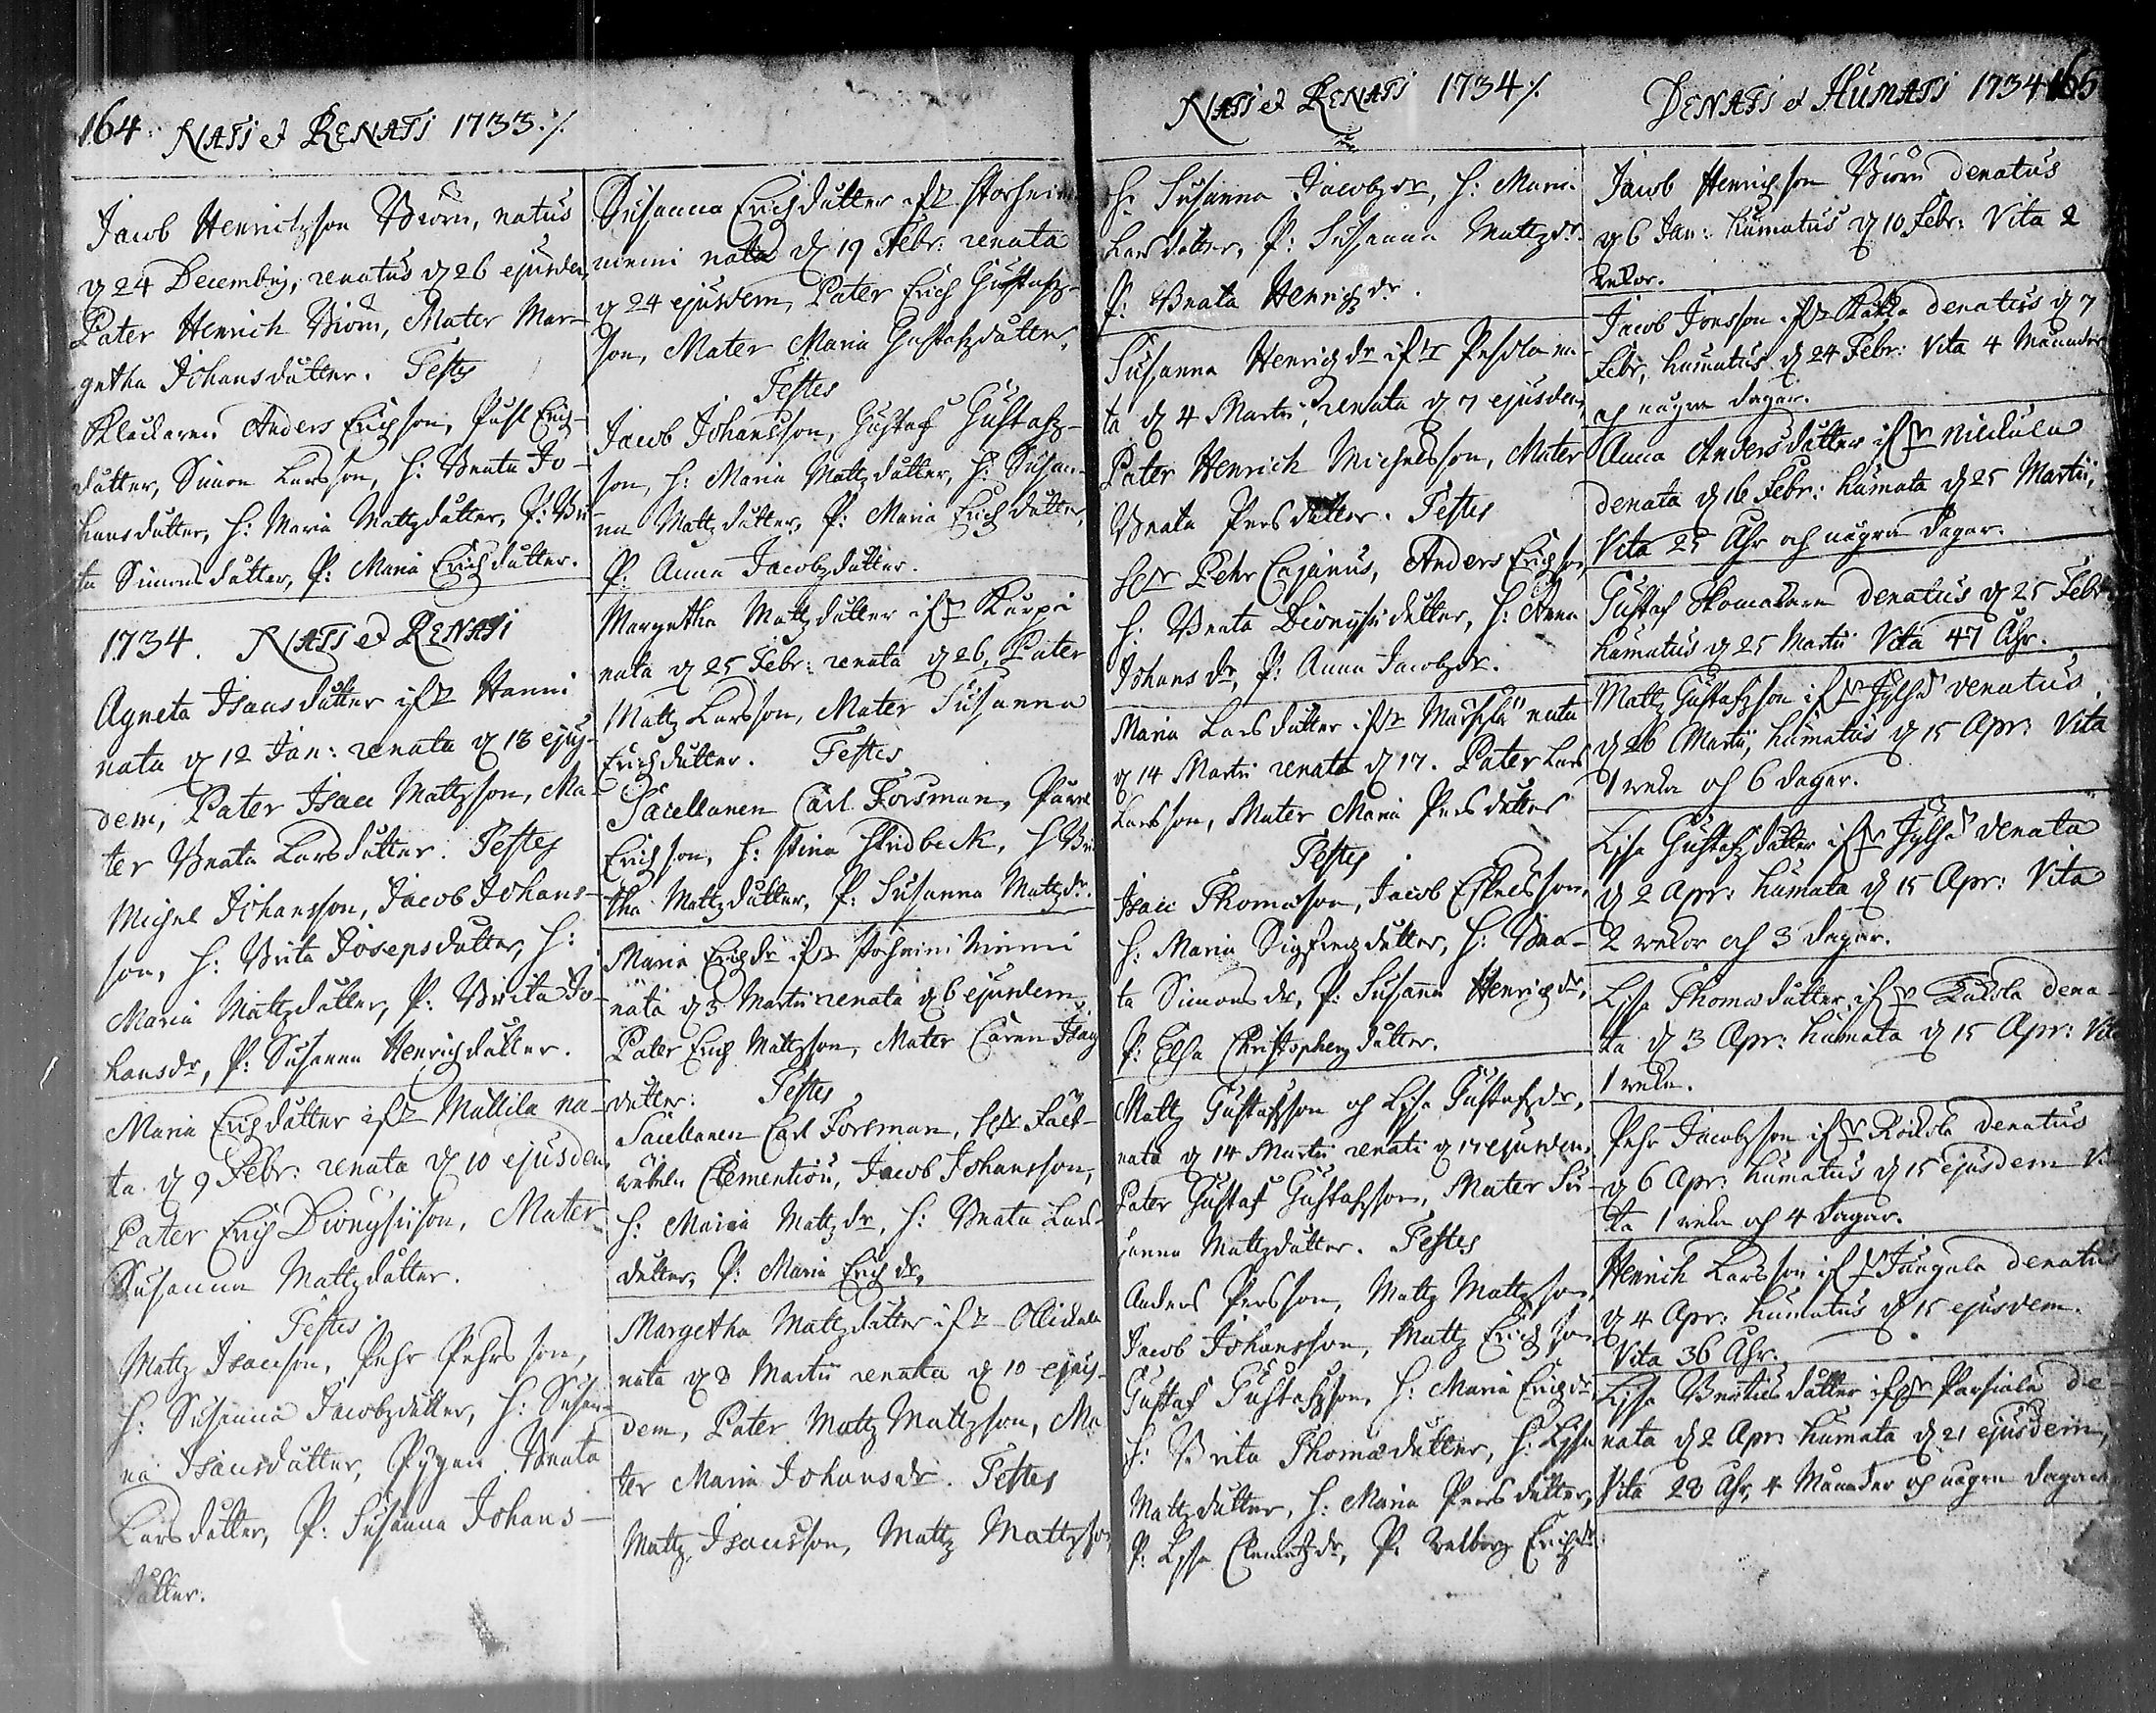 164. NATI et RENATI 1733 ./.
Jacob Henrichsson Biörn, natus
d 24 Decembris, renatus d 26 ejusdem,
Pater Henrich Biörn, Mater Mar-
getha Johansdutter. Testes
Klockaren Anders Erichson, Erich-
dutter, Simon Larsson, H: Beata Jo-
hansdutter, H: Maria Mattzdutter, P: Bri
ta Simonsdutter, P: Maria Erichdutter.
1734. NATI et RENATI
Agneta Isaacsdutter ifr Hanni
nata d 12 Jan: renata d 13 ejus-
dem, Pater Isaac Mattzson, Ma-
ter Beata Larsdutter. Testes
Michel Johansson, Jacob Johans-
son, H: Brita Josepsdutter, H:
Maria Mattzdutter, P: Brita Jo-
hansdr, P: Susanna Henrichdutter.
Maria Erichdutter ifr Mattila na-
ta d 9 Febr: renata d 10 ejusdem
Pater Erich Dionysiison, Mater
Susanna Mattzdutter.
Testes
Mattz Isacuson, Pehr Pehrsson,
H: Susanna Jacobzdutter, H: Susan
na Isacusdutter, Pygan Beata
Larsdutter, P: Susanna Johans-
dutter.
Susanna Erichdutter ifr Storheini
niemi nata d 19 Febr: renata
d 24 ejusdem, Pater Erich Gustafz-
son, Mater Maria Gustafzdutter,
Testes
Jacob Johansson, Gustaf Gustafz-
son, H: Maria Mattzdutter, H: Susan-
na Mattzdutter, P: Maria Erichdutter,
P: Anna Jacobzdutter.
Margetha Mattzdutter ifr Kurpi
nata d 25 Febr: renata d 26, Pater
Mattz Larsson, Mater Susanna
Erichdutter. Testes
Sacellanen Carl Forsman, Påvel
Erichson, H: Stina Lindbeck, H Bri
tha Mattzdutter, P: Susanna Mattzdr.
Maria Erichdr ifr Storheini niemi
nata d 3 Martii renata d 6 ejusdem,
Pater Erich Mattzson, Mater Caren Isacs
dutter: Testes
Sacellanen Carl Forsman, Hr Fält-
wäbeln Clementiou, Jacob Johansson,
H: Maria Mattzdr, H: Beata Lars-
dutter, P: Maria Erichdr,
Margetha Mattzdutter ifr Ollickala
nata d 8 Martii renata d 10 ejus-
dem, Pater Mattz Mattzson, Ma
ter Maria Johansdr. Testes
Mattz Isacusson, Mattz Mattzson
NATI et RENATI 1734 ./.
H: Susanna Jacobzdr, H: Maria
Larsdutter, P: Susanna Mattzdr
P: Beata Henrichzdr.
Susanna Henrichzdr ifr Pesola na-
ta d 4 Martii, renata d 7 ejusdem,
Pater Henrich Michelsson, Mater
Beata Persdutter. Testes
Hr Pehr Cajanus, Anders Erichson,
H: Beata Dionysiidutter, H: Anna
Johansdr, P: Anna Jacobzdr.
Maria Larsdutter ifr nata
d 14 Martii renata d 17. Pater Lars
Larsson, Mater Maria Persdutter
Testes
Isaac Thomasson, Jacob Eskelsson,
H: Maria Sigfredzdutter, H: Bea-
ta Simonsdr, P: Susanna Henrichzdr,
P: Elsa Christopherzdutter.
Mattz Gustafsson och Lisa Gustafzdr,
nata d 14 Martii renati d 17 ejusdem,
Pater Gustaf Gustafsson, Mater Su-
sanna Mattzdutter. Testes
Anders Persson, Mattz Mattzson,
Jacob Johansson, Mattz Erichson
Gustaf Gustafsson, H: Maria Erichzdr
H: Brita Thomædutter, H: Lisa
Mattzdutter, H: Maria Persdutter,
P: Lisa Clemetzdr, P. Walborg Erichsdr
DENATI et HUMATI 1734 165
Jacob Henrichson Biörn denatus
d 6 Jan: humatus d 10 Febr: Vita 2
wekor.
Jacob Jonsson ifr denatus d 7
Febr, humatus d 24 Febr: Vita 4 Månader
och några dagar.
Anna Andersdutter ifr Nickula
denata d 16 Febr: humata d 25 Martii,
Vita 25 Ahr och några dagar.
Gustaf Skomakare denatus d 25 Febr.
humatus d 25 Martii Vita 47 Ahr.
Mattz Gustafzson ifr Jylhä denatus
d 26 Martii, humatus d 15 Apr: Vita
1 weka och 6 dagar.
Lisa Gustafzdutter ifr Jylhä denata
d 2 Apr: humata d 15 Apr: Vita
2 wekor och 3 dagar.
Lisa Thomædutter ifr Kukola dena-
ta d 3 Apr: humata d 15 Apr: Vita
1 weka.
Pehr Jacobzson ifr Kockola denatus
d 6 Apr: humatus d 15 ejusdem Vi
ta 1 weka och 4 dagar.
Henrich Larsson ifr Jungula denatus
d 4 Apr: humatus d 15 ejusdem.
Vita 36 Ahr.
Lisa Bertilsdutter ifr Parsiala de-
nata d 2 Apr: humata d 21 ejusdem,
Vita 28 Ahr, 4 Månader och några dagar